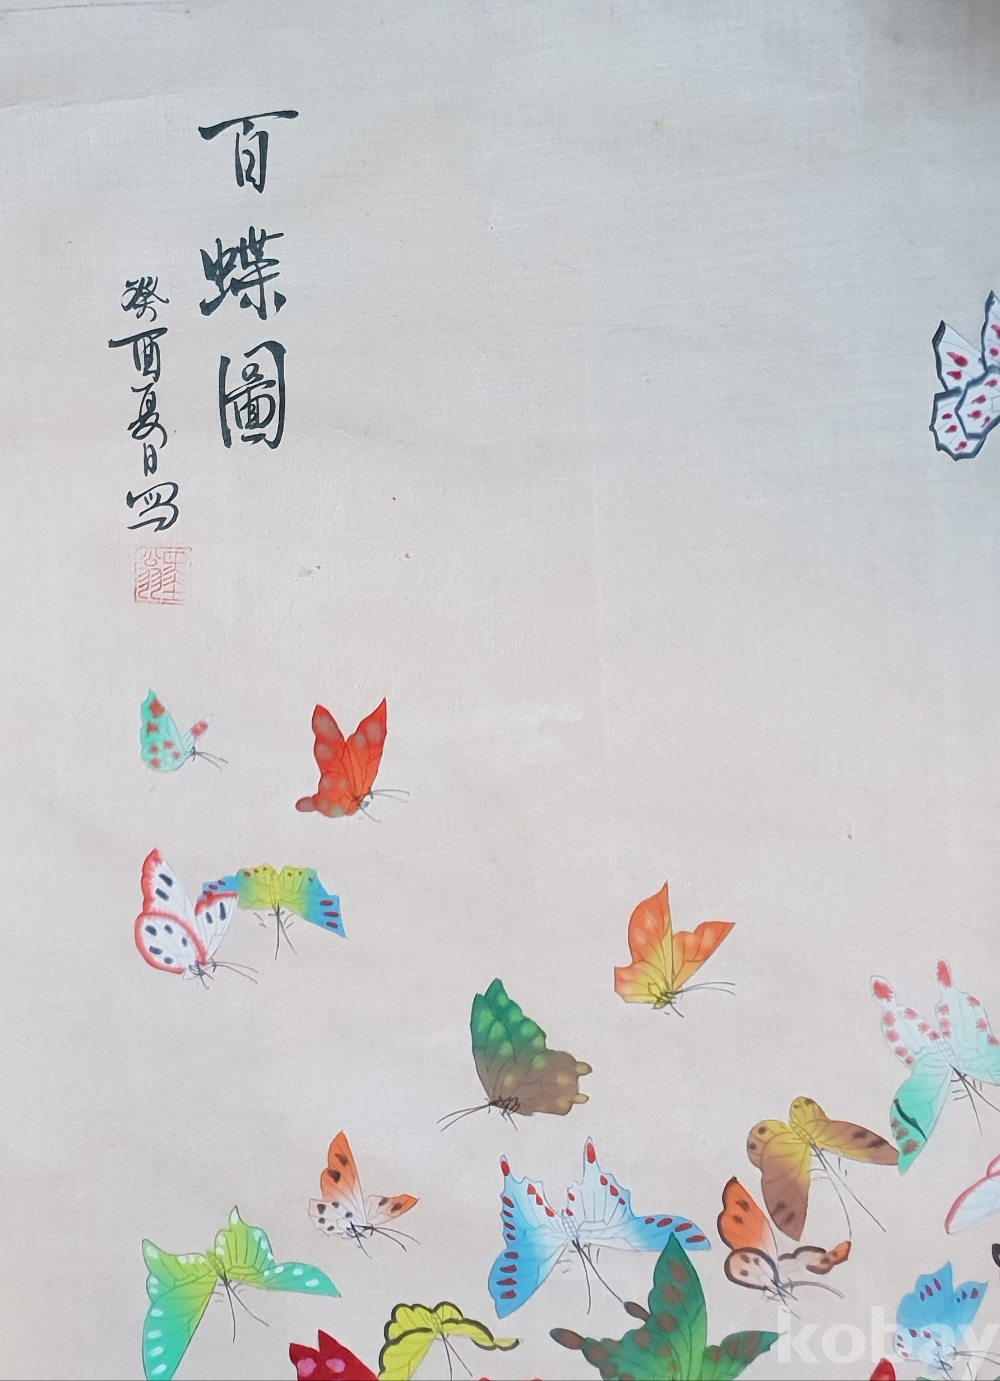 百蝶圖
癸酉夏日写
kobay